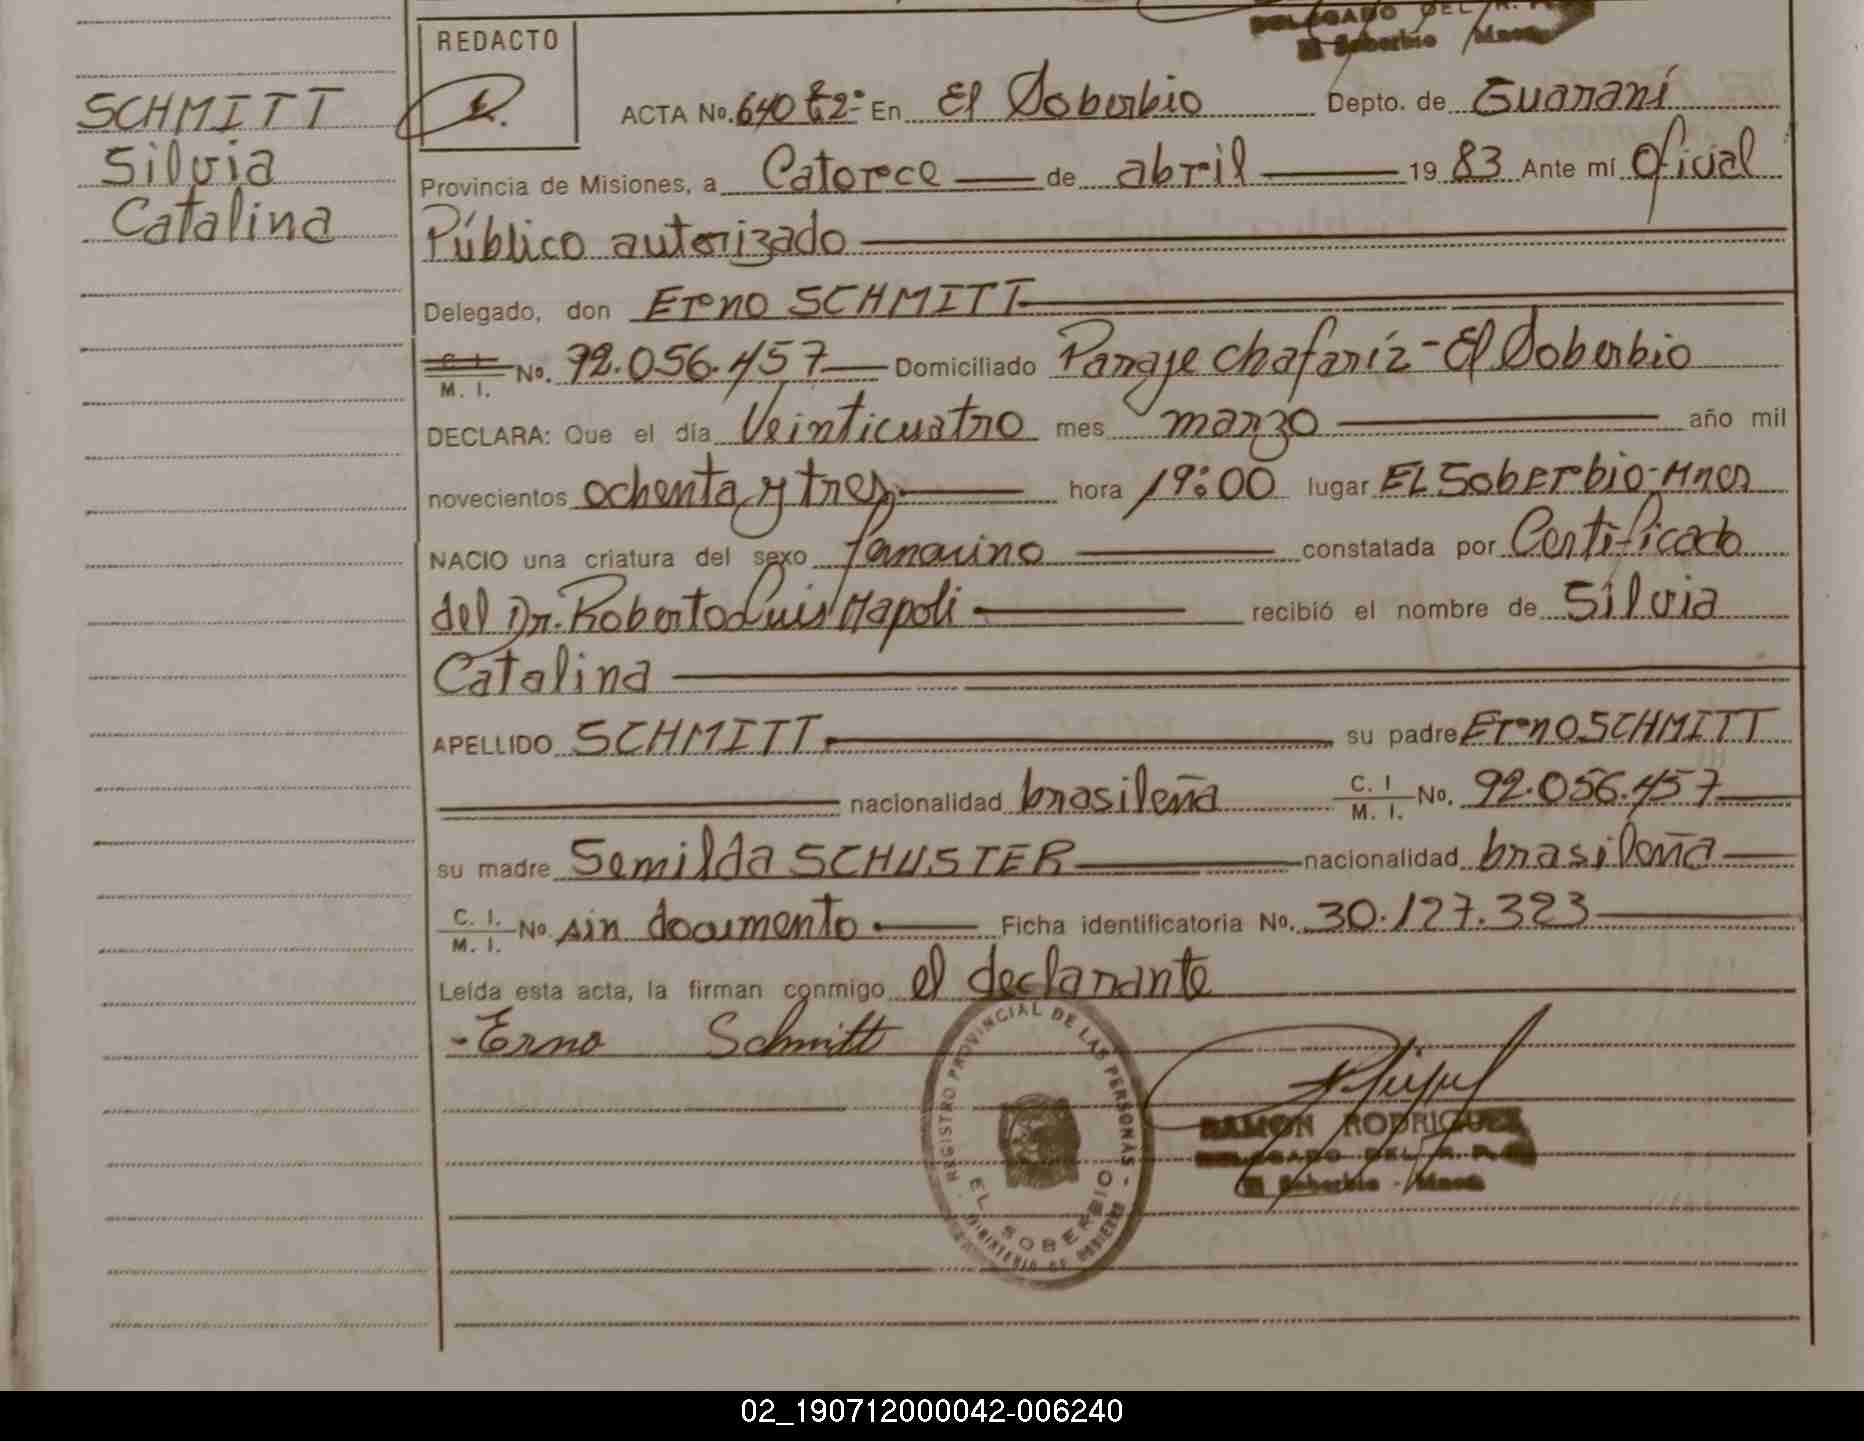 DELEGADO DEL R. P.
El Soberbio Mnes
REDACTO
SCHMITT
Silvia
Catalina
ACTA No. 640 t2º En El Soberbio Depto. de Guaraní
Provincia de Misiones, a Catorce de abril 19 83 Ante mí Oficial
Público autorizado
Delegado, don Erno SCHMITT
C. I.
M. I. No. 92.056.457 Domiciliado Paraje Chafaríz - El Soberbio
DECLARA: Que el día Veinticuatro mes marzo año mil
novecientos ochenta y tres hora 19:00 lugar EL Soberbio-Mnes
NACIO una criatura del sexo femenino constatada por Certificado
del Dr. Roberto Luis Napoli recibió el nombre de Silvia
Catalina
APELLIDO SCHMITT su padre Erno SCHMITT
nacionalidad brasileña C. I. M. I. No. 92.056.457
su madre Semilda SCHUSTER nacionalidad brasileña
C. I. M. I. No sin documento Ficha identificatoria No. 30.127.323
Leída esta acta, la firman conmigo el declarante
- Erno Schmitt
REGISTRO PROVINCIAL DE LAS PERSONAS -
EL SOBERBIO
MINISTERIO DE GOBIERNO
RAMON RODRIGUEZ
DELEGADO DEL R. P.
El Soberbio - Mnes
02_190712000042-006240